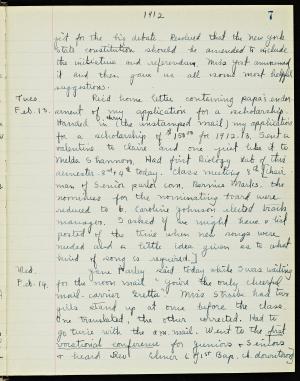 1912 7
ject for the big debate. Resolved that the new york
state constitution should be amended to include
the initiative and referendum. Miss Yost announced
it and then gave us all some most helpful
suggestions.
Tues. Rec'd home letter containing papa's endor-
Feb. 13. sement of my application for a scholarship.
Handed in the my application
for a scholarship of $150 for 1912-13. Sent a
valentine to Claire and one just like it to
Melda Shannon. Had first Biology lab of this
semester 3rd & 4th today. Class meeting 8th Chair
man of Senior parlor com. Bernice Marks. the
nominees for the nominating board were
reduced to 6. Caroline Johnson elected track
manager. I asked if we might have a list
posted of the time when new songs were
needed and a little idea given as to what
kind of song is required.]
Wed. Jane Harley said today while I was waiting
Feb. 14. for the noon mail "you're the only cheerful
mail-carrier Gretta". Miss Strube had two
girls stand up at once before the class.
One translated, the other corrected. Had to
go twice with the a.m. mail. Went to the first
vocational conference for juniors & seniors
& heard Rev. Elmer of 1st Bap. ch. downtown